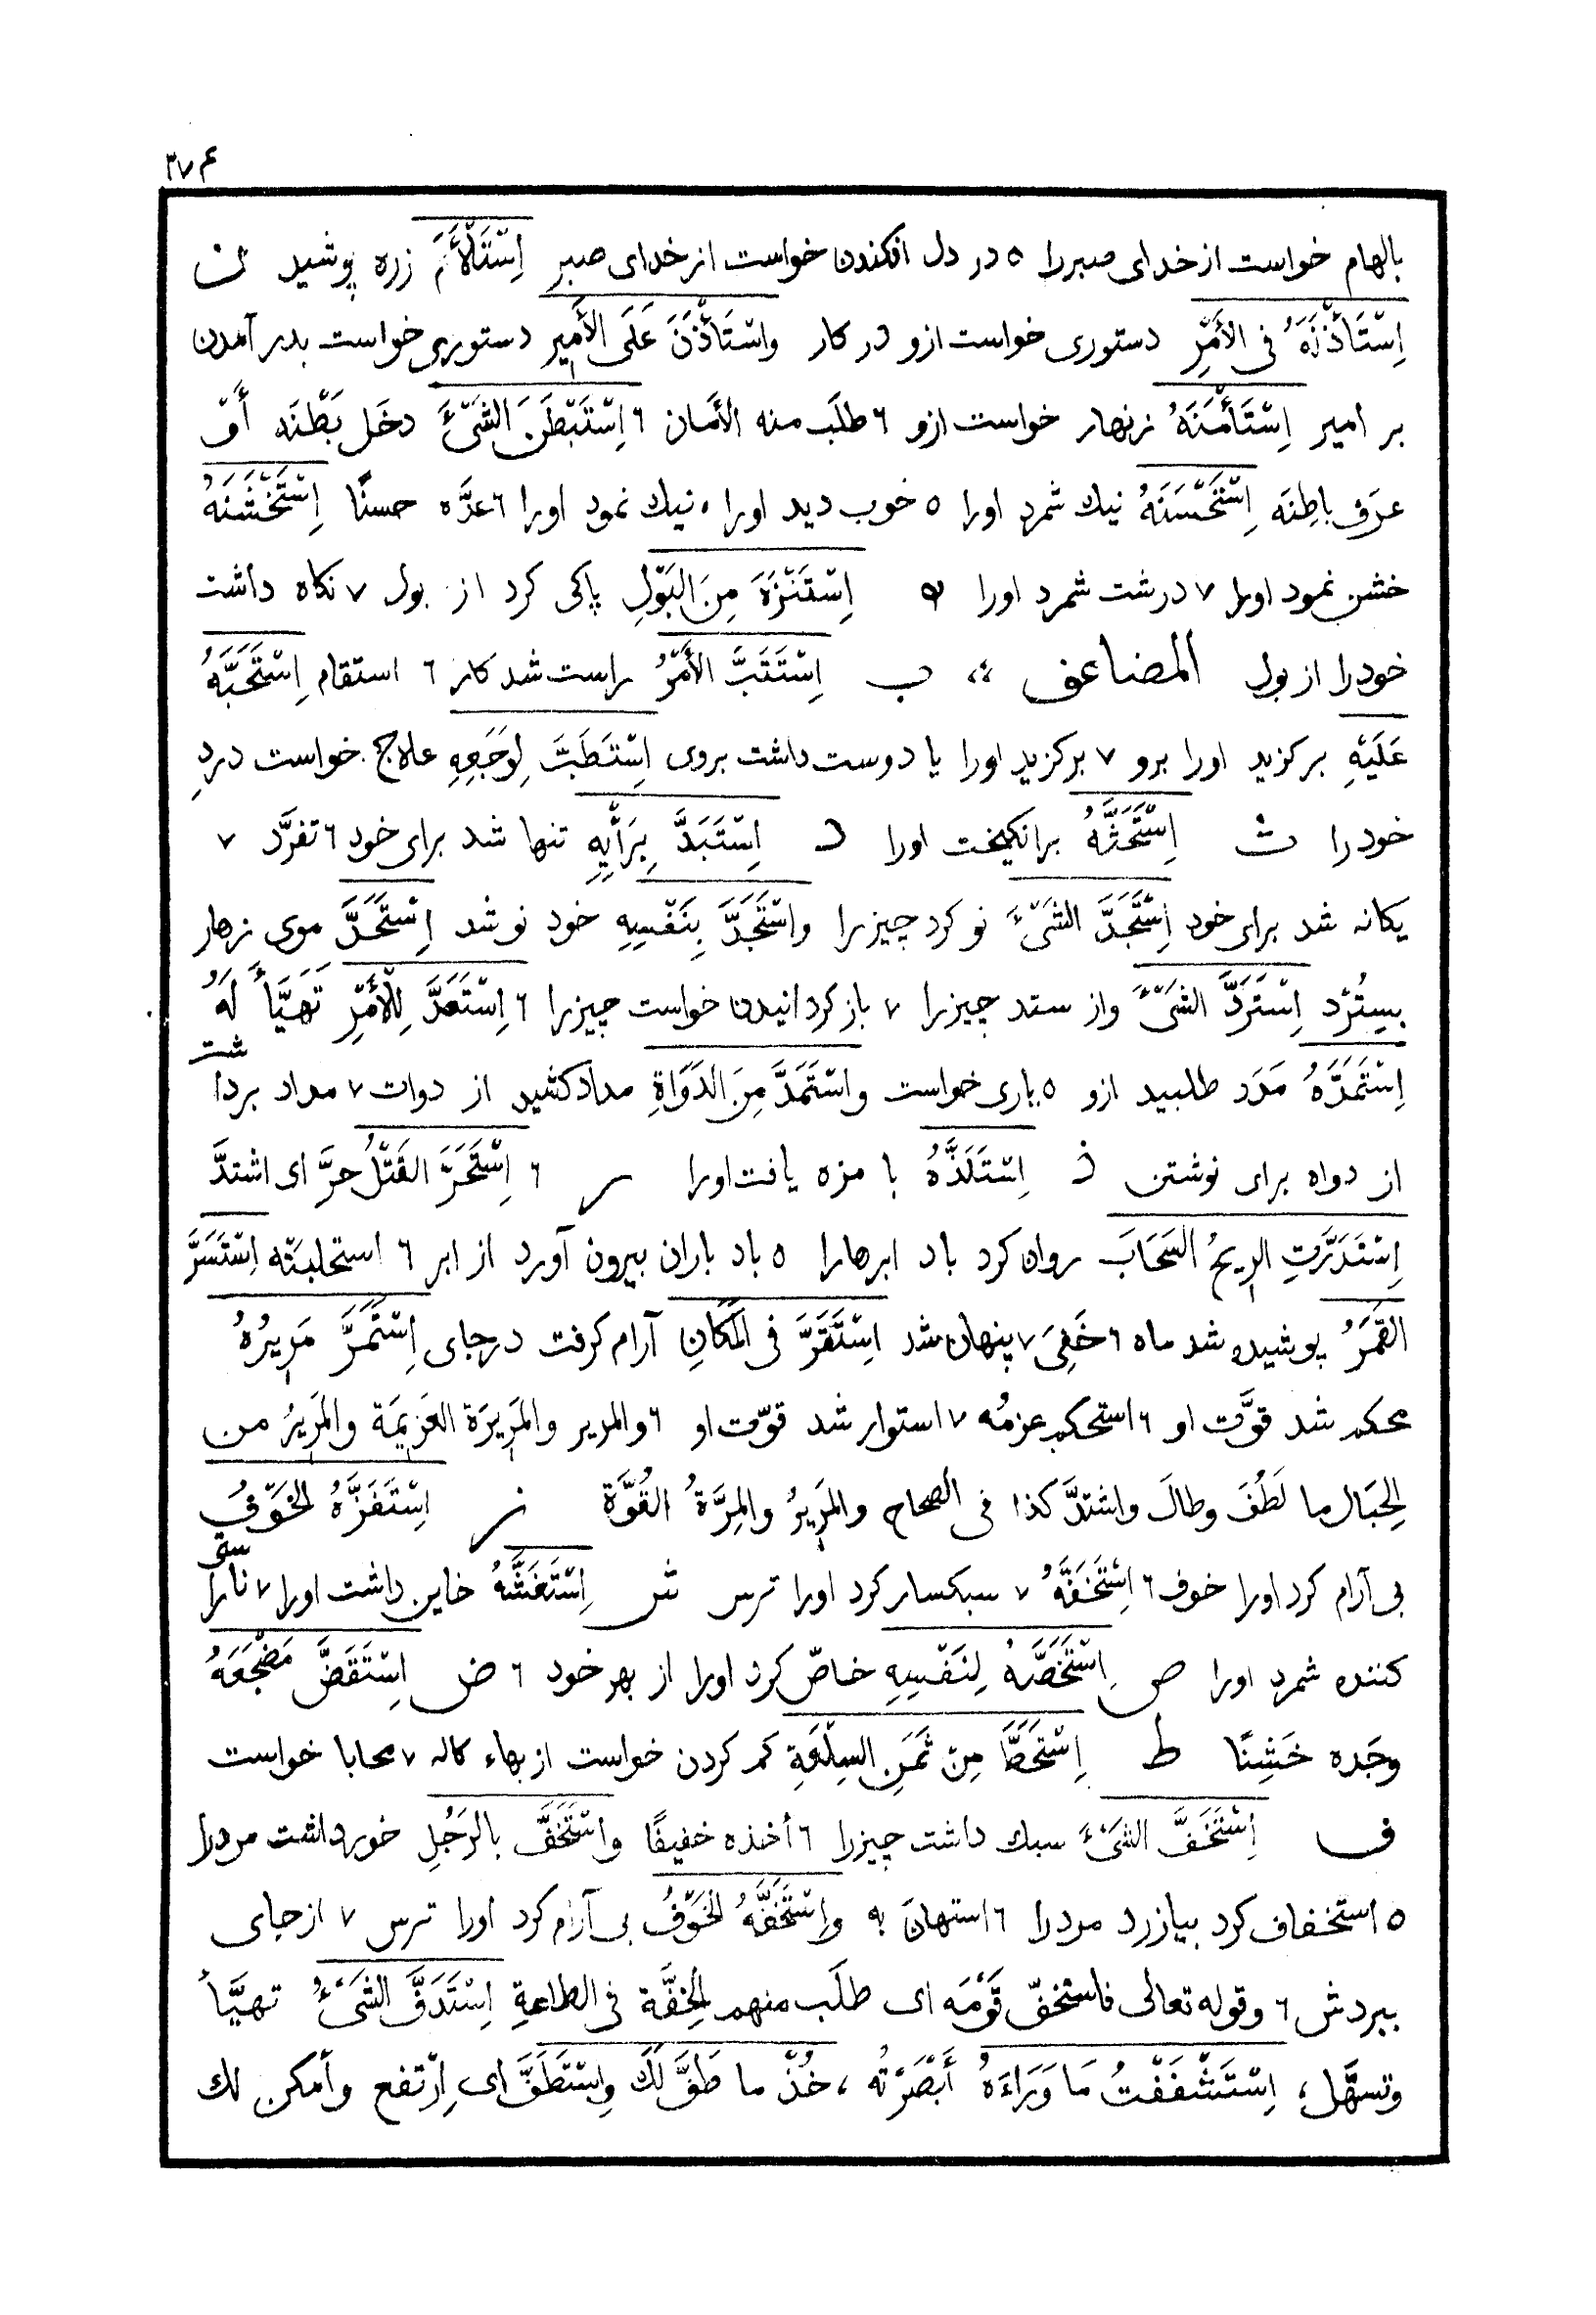 ٣٧٤
بالهام خواست از خدای صبررا ٥ در دل افکندن خواست از خدای صبر اِسْتَلْأَمَ زره پوشید ن
اِسْتَأْذَنَهُ فی الأَمْرِ دستوری خواست ازو در کار واسْتَأْذَنَ عَلَی الأَمِیرِ دستوری خواست بدر آمدن
بر امیر اِسْتَأْمَنَهُ زنهار خواست ازو ٦ طلَب منه الأمان ٦ اِسْتَبْطَنَ الشَیْءَ دخَل بَطْنَه أَوْ
عرَف باطِنَه اِسْتَحْسَنَهُ نیك شمرد اورا ٥ خوب دید اورا ٥ نیك نمود اورا ٦ عدَّه حسنًا اِسْتَخْشَنَهُ
خشن نمود اورا ٧ درشت شمرد اورا ه اِسْتَنْزَهَ مِنَ البَوْلِ پاکی کرد از بول ٧ نکاه داشت
خودرا از بول المضاعف ب اِسْتَتَبَّ الأَمْرُ راست شد کار ٦ استقام اِسْتَحَبَّهُ
عَلَیْهِ برکزید اورا برو ٧ برکزید اورا یا دوست داشت بروی اِسْتَطَبَّ لِوَجَعِهِ علاج خواست دردِ
خودرا ث اِسْتَحَثَّهُ برانکیخت اورا د اِسْتَبَدَّ بِرَأْیِهِ تنها شد برای خود ٦ تفرَّد ٧
یکانه شد برای خود اِسْتَجَدَّ الشَیْءَ نو کرد چیزرا واسْتَجَدَّ بِنَفْسِهِ خود نو شد اِسْتَحَدَّ موی زهار
بسِتُرْد اِسْتَرَدَّ الشَیْءَ واز ستد چیزرا ٧ باز کردانیدن خواست چیزرا ٦ اِسْتَعَدَّ لِلْأَمْرِ تَهَیَّأَ لَهُ
اِسْتَمَدَّهُ مَدَد طلبید ازو ٥ یاری خواست واسْتَمَدَّ مِنَ الدَوَاةِ مداد کشید از دوات ٧ مداد بردا شت
از دواه برای نوشتن ذ اِسْتَلَذَّهُ با مزه یافت اورا ر ٦ اِسْتَحَرَّ القَتْلُ حرَّ ای اشتدَّ
اِسْتَدَرَّتِ الرِیحُ السَحَابَ روان کرد باد ابرهارا ٥ باد باران بیرون آورد از ابر ٦ استحلبَتْه اِسْتَسَرَّ
القَمَرُ پوشیده شد ماه ٦ خَفِیَ ٧ پنهان شد اِسْتَقَرَّ فی المَکَانِ آرام کرفت در جای اِسْتَمَرَّ مَرِیرُهُ
محکم شد قوَّت او ٦ استحکم عزمُه ٧ استوار شد قوّت او ٦ والمریر والمَرِیرَة العَزِیمَة والمَرِیرُ من
الحِبَال ما لَطُفَ وطالَ واشتدَّ کذا فی الصحاح والمَرِیرُ والمِرَّةُ القُوَّة ز اِسْتَفَزَّهُ الخَوْفُ
بی آرام کرد اورا خوف ٦ اِسْتَخَفَّهُ ٧ سبکسار کرد اورا ترس ش اِسْتَغَشَّهُ خاین داشت اورا ٧ نارا ستی
کننده شمرد اورا ص اِسْتَخَصَّهُ لِنَفْسِهِ خاصّ کرد اورا از بهر خود ٦ ض اِسْتَقَضَّ مَضْجَعَهُ
وجَده خَشِنًا ط اِسْتَحَطَّ مِنْ ثَمَنِ السِلْعَةِ کم کردن خواست از بهاء کاله ٧ محابا خواست
ف اِسْتَخَفَّ الشَیْءَ سبك داشت چیزرا ٦ أخذه خفیفًا واسْتَخَفَّ بالرَجُلِ خور داشت مردرا
٥ استخفاف کرد بیازرد مردرا ٦ استهانَ به واِسْتَخَفَّهُ الخَوْفُ بی آرام کرد اورا ترس ٧ از جای
ببردش ٦ وقوله تعالی فاستخفّ قَوْمَه ای طلَب منهم الخِفَّة فی الطاعةِ اِسْتَدَفَّ الشَیْءُ تهیَّأ
وتسهَّل ، اِسْتَشْفَفْتُ مَا وَرَاءَهُ أَبْصَرْتُه ، خُذْ ما طَفَّ لَكَ وَاِسْتَطَفَّ ای اِرْتفع وأمکن لك